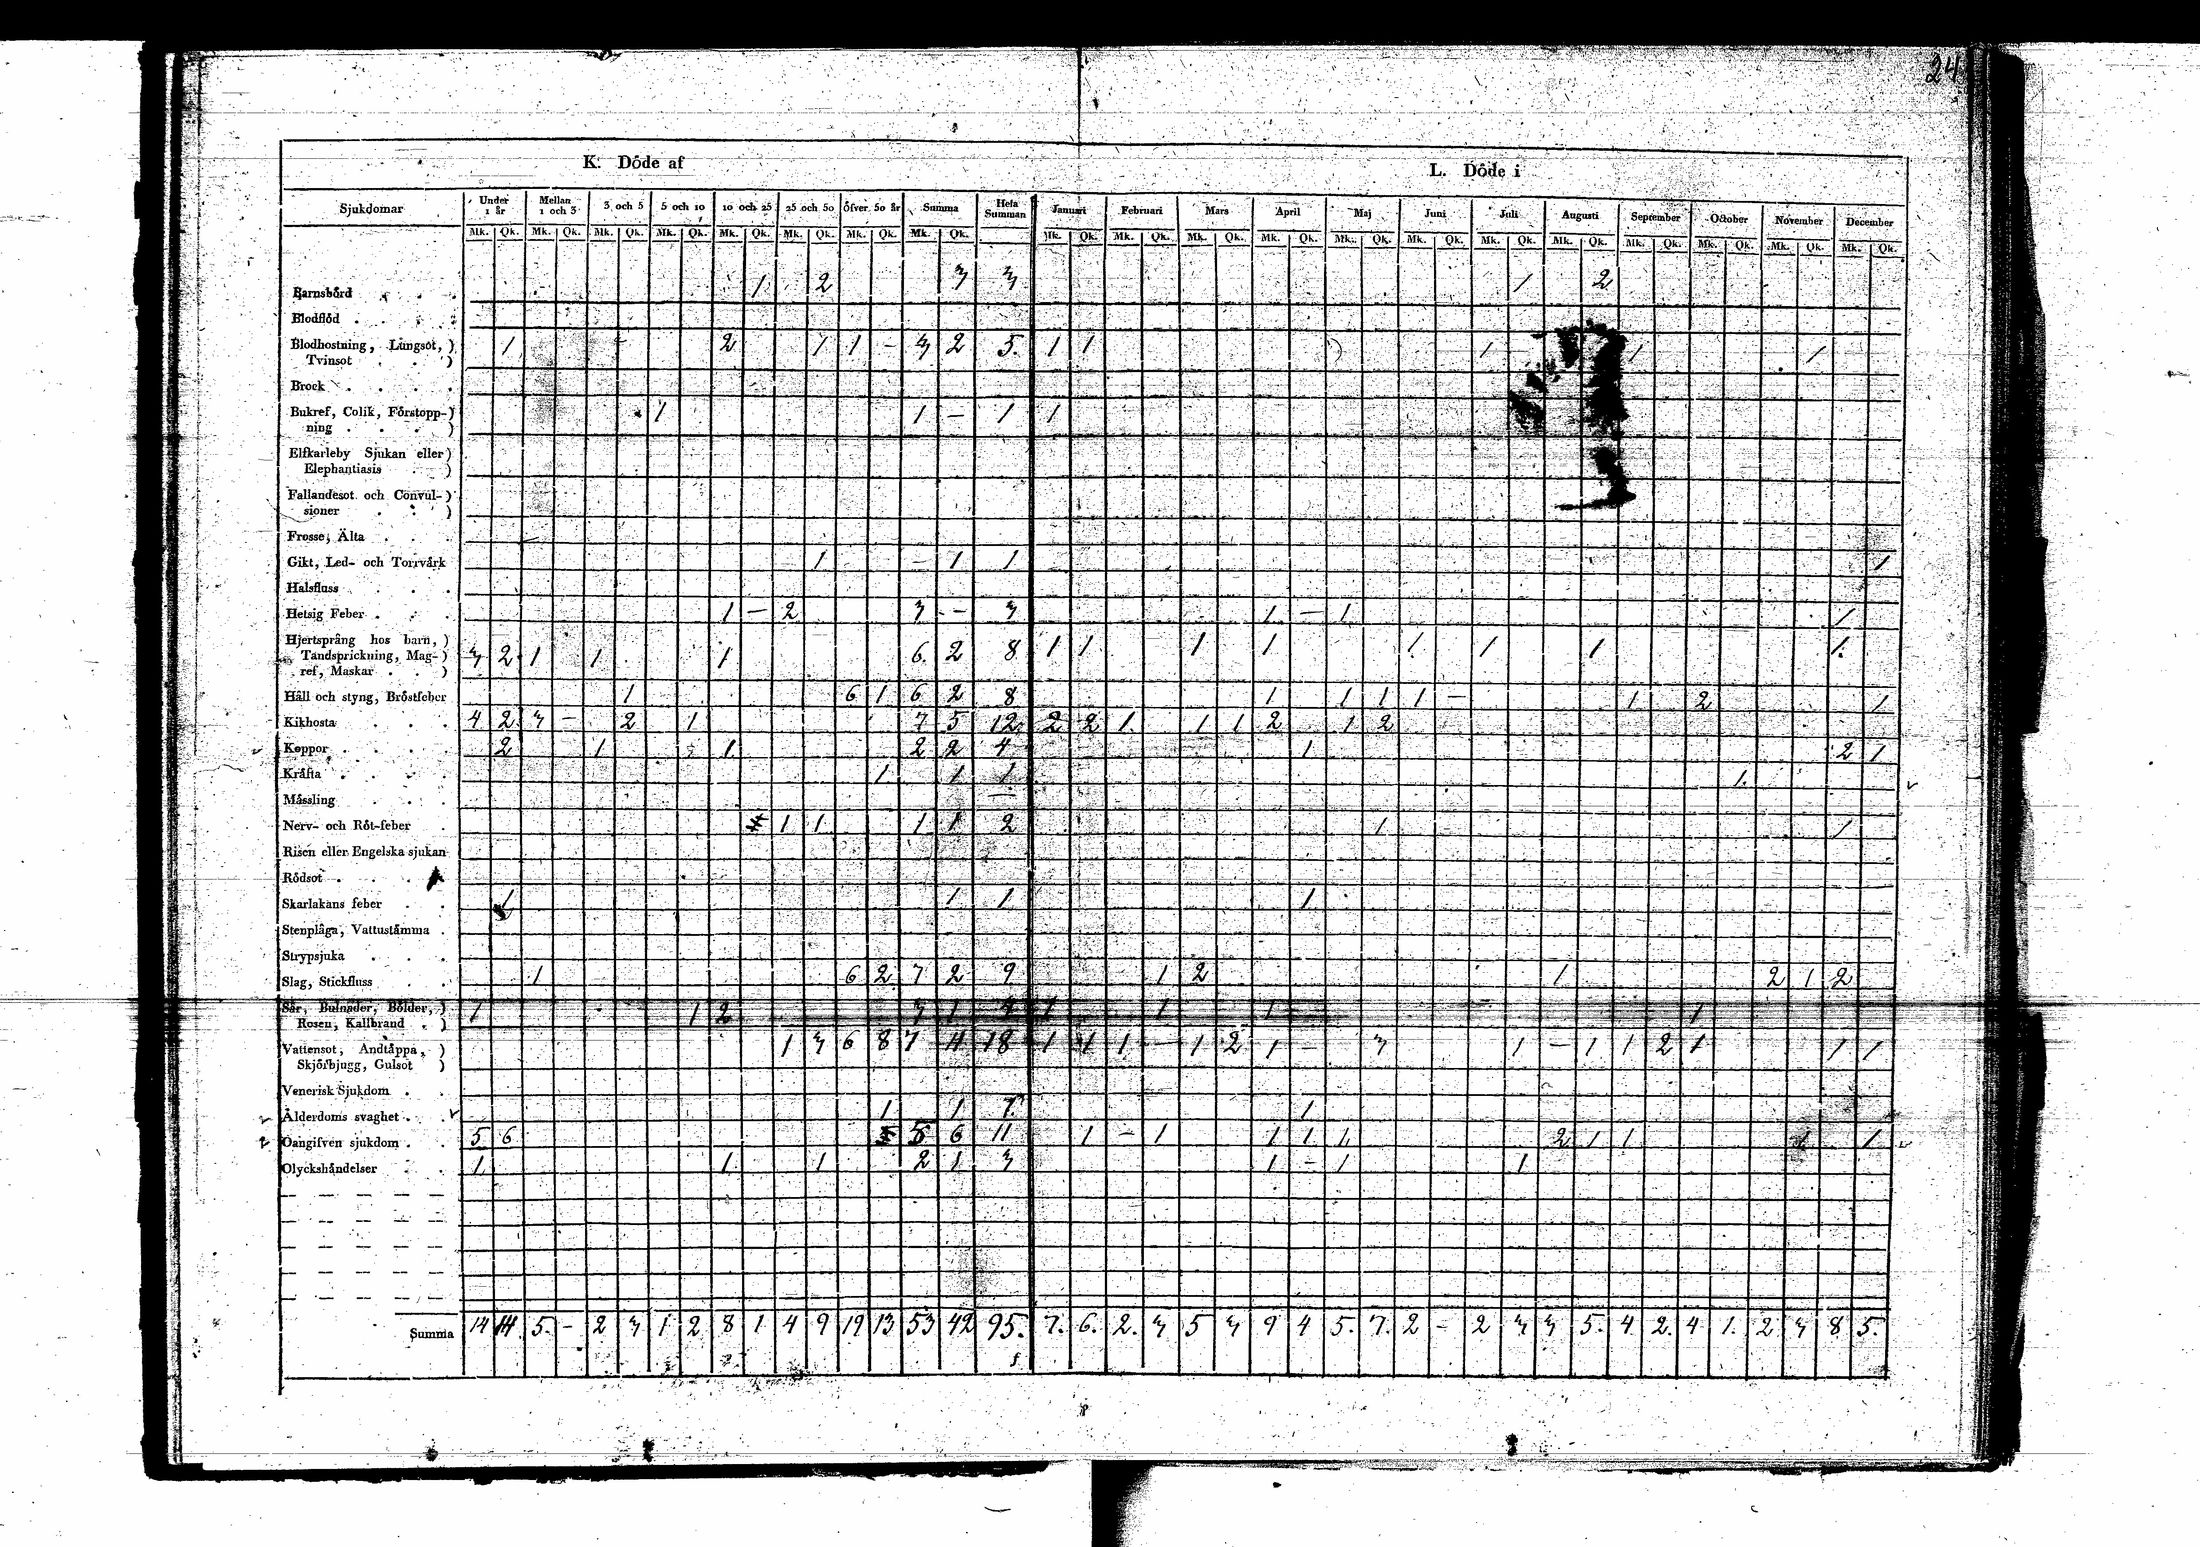 24
K. Döde af L. Döde i
Sjukdomar Under 1 år Mellan 1 och 3 3 och 5 5 och 10 10 och 25 25 och 50 Öfver 50 år Summa Hela Summan Januari Februari Mars April Maj Juni Juli Augusti September October November December
Mk. Qk. Mk. Qk. Mk. Qk. Mk. Qk. Mk. Qk. Mk. Qk. Mk. Qk. Mk. Qk. Mk. Qk. Mk. Qk. Mk. Qk. Mk. Qk. Mk. Qk. Mk. Qk. Mk. Qk. Mk. Qk. Mk. Qk. Mk. Qk. Mk. Qk. Mk. Qk.
Barnsbörd . . . 1 2 3 3 1 2
Blodflöd . . . .
Blodhostning, Lungsot, ) 1 2 1 1 - 3 2 5. 1 1 1 1 1
Tvinsot . . )
Brock . . . .
Bukref, Colik, Förstopp-) 1 1 - 1 1
ning . . . )
Elfkarleby Sjukan eller)
Elephantiasis . )
Fallandesot och Convul-)
sioner . . )
Frosse, Älta . . .
Gikt, Led- och Torrvärk 1 - 1 1 1
Halsfluss . . .
Hetsig Feber . . . 1 - 2 3 - 3 1 - 1 1
Hjertsprång hos barn, )
Tandsprickning, Mag-) 3 2 1 1 1 6. 2 8 1 1 1 1 1 1 1 1.
ref, Maskar . . )
Håll och styng, Bröstfeber 1 6 1 6 2 8 1 1 1 1 - 1 2 1
Kikhosta . . . 4 2 3 - 2 1 7 5 12 2 2 1. 1 1 2 1 2
Koppor . . . . 2 1 1 2 2 4 1 2 1
Kräfta . . . . 1 1 1 1.
Mässling . . .
Nerv- och Röt-feber . 1 1 1 1 2 1 1
Risen eller Engelska sjukan
Rödsot . . .
Skarlakans feber . . 1 1 1 1
Stenplåga, Vattustämma .
Strypsjuka . . .
Slag, Stickfluss . . 1 6 2 7 2 9 1 2 1 2 1 2
Sår, Bulnader, Bölder, ) 1 1 2 3 1 4 1 1 1 1
Rosen, Kallbrand . )
Vattensot, Andtäppa, ) 1 3 6 8 7 11 18 1 1 1 - 1 2 1 - 3 1 - 1 1 2 1 1 1
Skjörbjugg, Gulsot )
Venerisk Sjukdom . .
Ålderdoms svaghet . . 1 1 1 1
Oangifven sjukdom . . 5 6 5 6 11 1 - 1 1 1 1. 2 1 1 1 1
Olyckshändelser . . 1 1 1 2 1 3 1 - 1 1
Summa 14 14 5. - 2 3 1 2 8 1 4 9 19 13 53 42 95. 7. 6. 2. 3 5 3 9 4 5. 7. 2 - 2 3 3 5. 4 2. 4 1. 2 3 8 5.